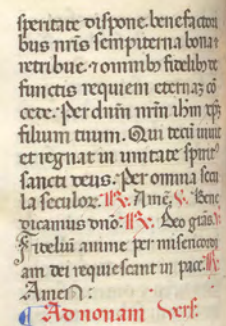 speritate dispone. benefactori
bus nr̄is sempiterna bona
retribue. ⁊ omnib⁹ fidelib⁹ de
functis requiem eternaꝫ cō
cede. Per dn̄m nr̄m ih̄m xp̄m
filium tuum. Qui tecū uiuit
et regnat in unitate spirit⁹
sancti deus. Per omnia secu
la seculoꝝ. ℟. Amē. ℣. Bene
dicamus dn̄o. ℟. Deo gr̄as. ℣.
Fideliū anime per misericordi
am dei requiescant in pace. ℟.
Amen:
Ad nonam vers.